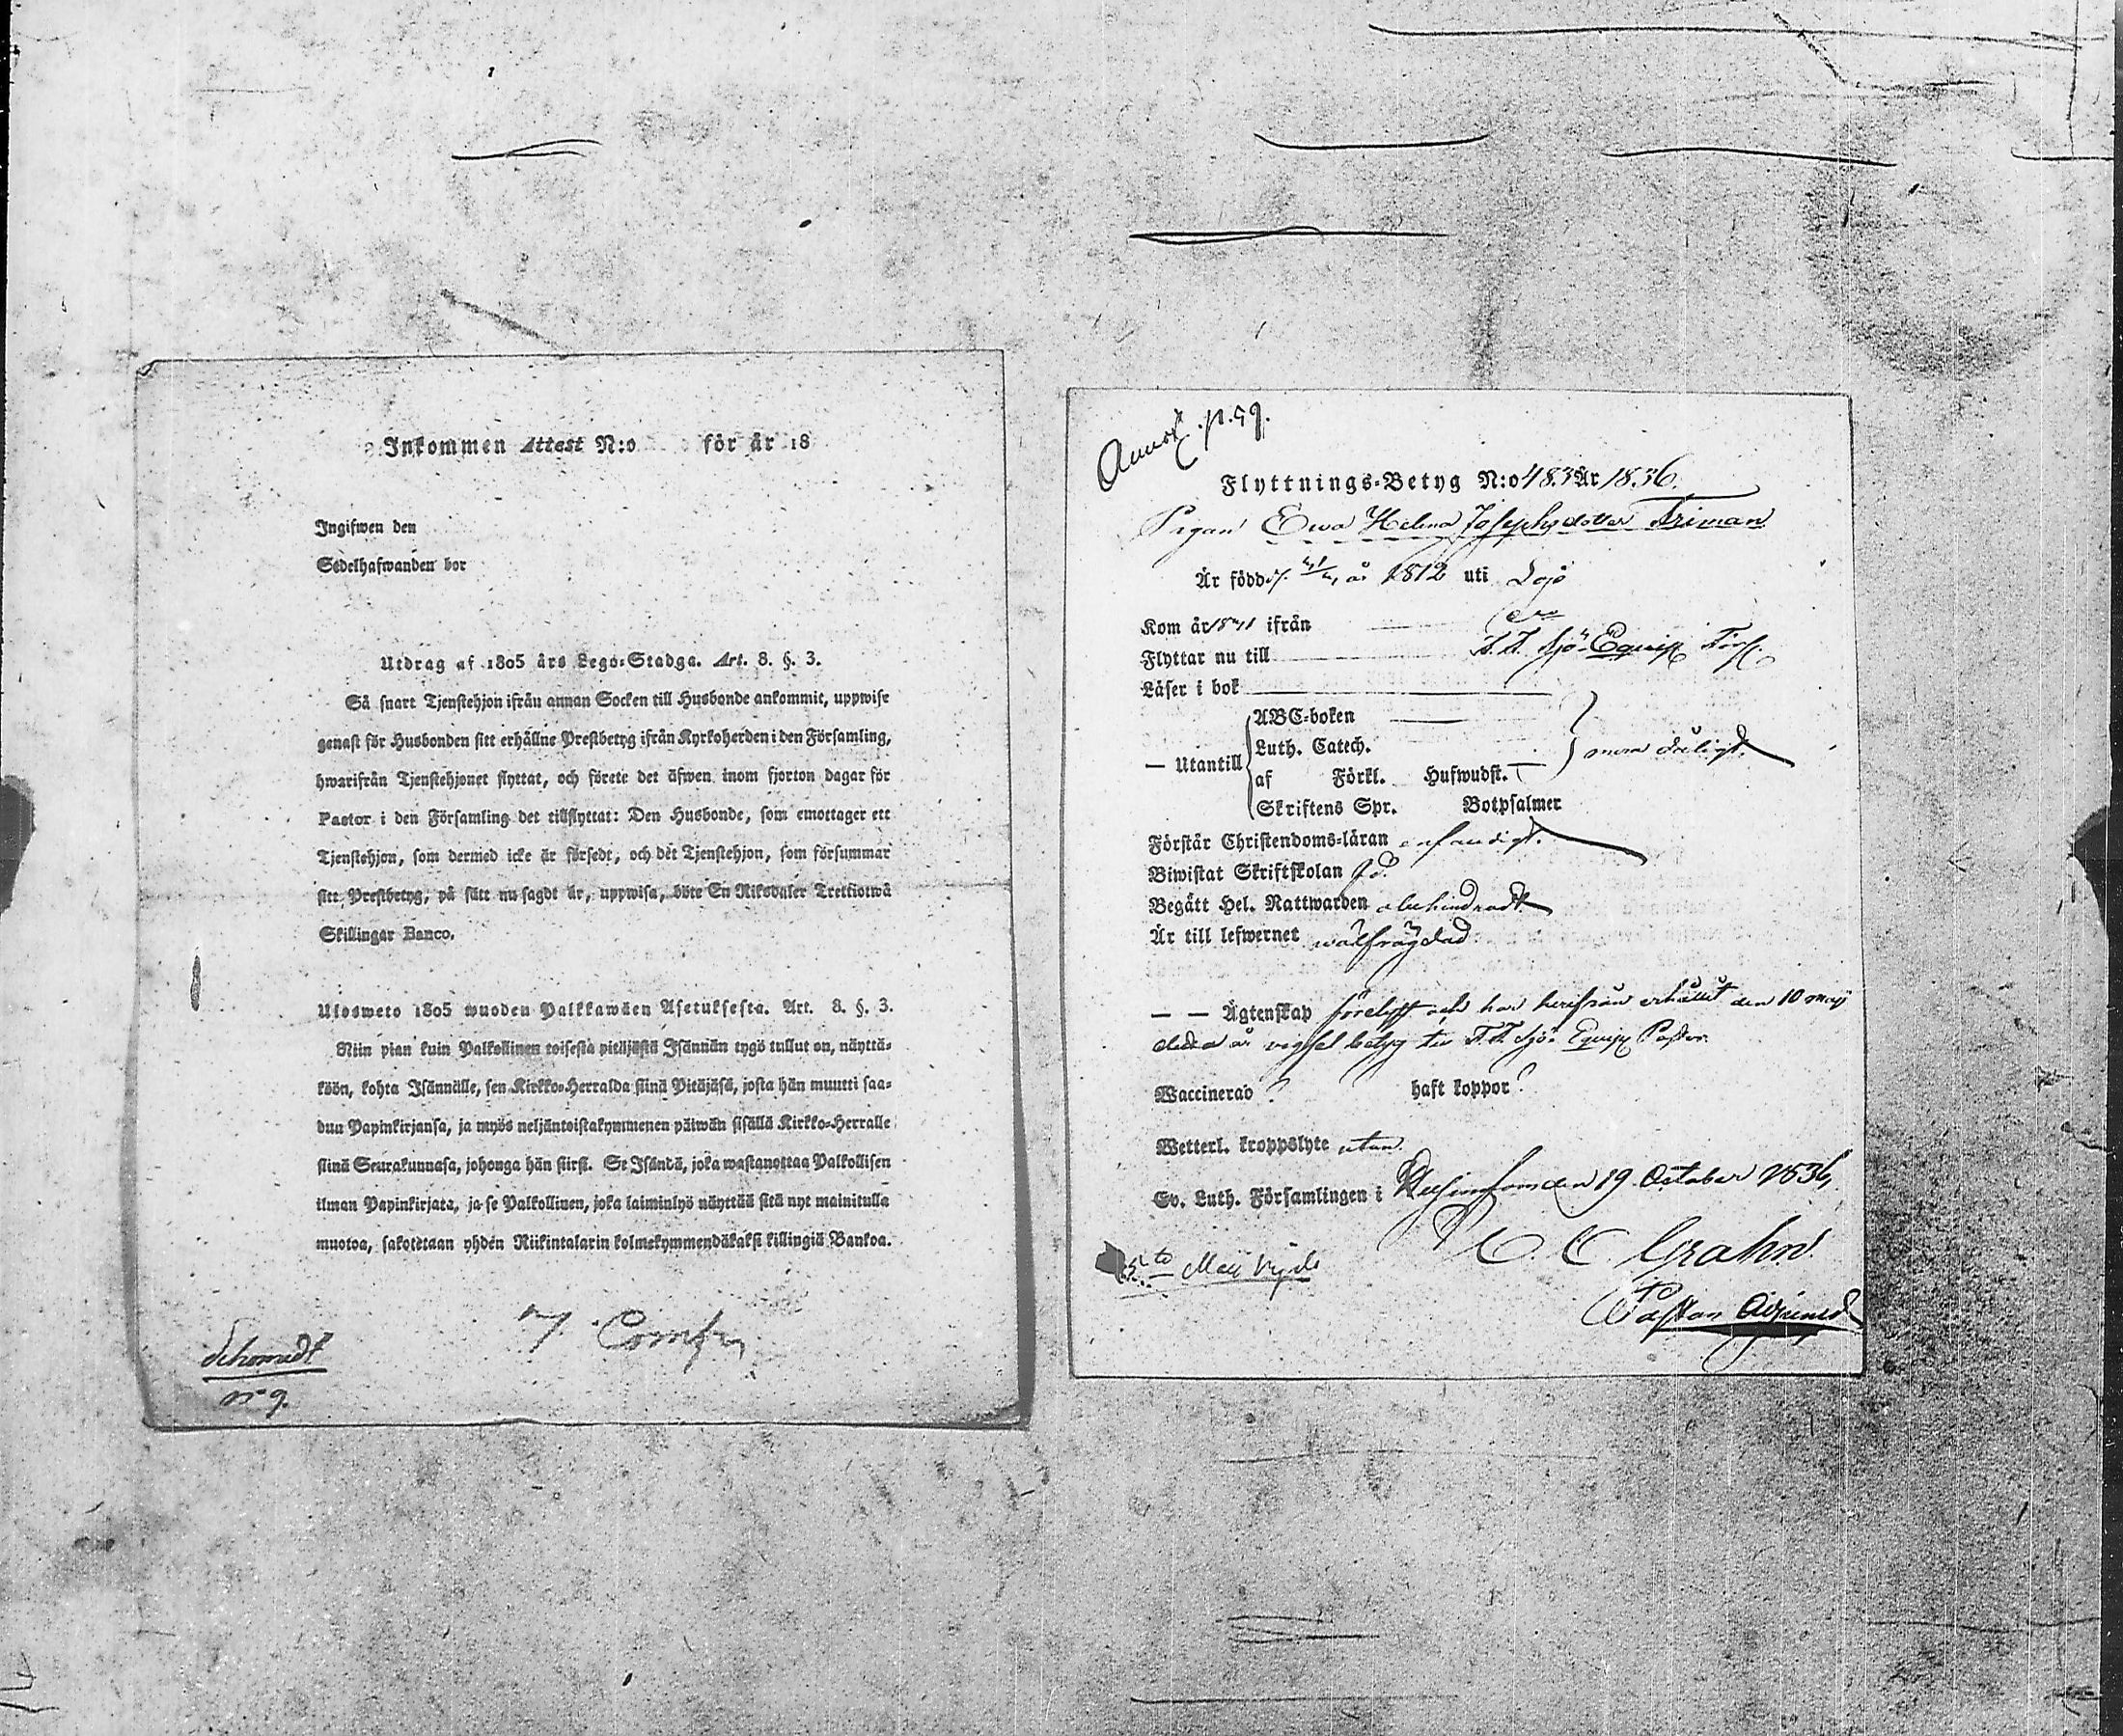 Inkommen Attest N:o för år 18
Ingifwen den
Sedelhafwanden bor
Utdrag af 1805 års Lego-Stadga. Art. 8. §. 3.
Så snart Tjenstehjon ifrån annan Socken till Husbonde ankommit, uppwise
genast för Husbonden sitt erhållne Prestbetyg ifrån Kyrkoherden i den Församling,
hwarifrån Tjenstehjonet flyttat, och förete det äfwen inom fjorton dagar för
Pastor i den Församling det tillflyttat: Den Husbonde, som emottager ett
Tjenstehjon, som dermed icke är försedt, och det Tjenstehjon, som försummar
sitt Prestbetyg, på sätt nu sagdt är, uppwisa, böte En Riksdaler Trettiotwå
Skillingar Banco.
Ulosweto 1805 wuoden Palkkawäen Asetuksesta. Art. 8. §. 3.
Niin pian kuin Palkollinen toisesta pitäjästä Isännän tygö tullut on, näyttä-
köön, kohta Isännälle, sen Kirkko-Herralda siinä Pitäjäsä, josta hän muutti saa-
dun Papinkirjansa, ja myös neljäntoistakymmenen päiwän sisällä Kirkko-Herralle
siinä Seurakunnasa, johonga hän siirsi. Se Isändä, joka wastanottaa Palkollisen
ilman Papinkirjata, ja se Palkollinen, joka laiminlyö näyttää sitä nyt mainitulla
muotoa, sakotetaan yhden Riikintalarin kolmekymmendäkaksi killingiä Bankoa.
Annot. p. 59.
Flyttnings-Betyg N:o 483 År 1836.
Pigan Ewa Helena Josephsdotter Friman
Är född år 1812 uti Lojo
Kom år ifrån
Flyttar nu till Sjö-Equip
Läser i bok
— Utantill
ABC-boken
Luth. Catech.
af Förkl. Hufwudst.
Skriftens Spr. Botpsalmer
Förstår Christendoms-läran enfaldigt.
Biwistat Skriftskolan
Begått Hel. Nattwarden obehindradt
Är till lefwernet wälfrägdad
— — Ägtenskap och har herifrån erhållit den 10 maij
detta år betyg Sjö Equip Pastor.
Waccinerad ? haft koppor ?
Wetterl. kroppslyte utan.
Ev. Luth. Församlingen i Helsingfors den 19 October 1836.
C. Grahn
Pastors Adjunct